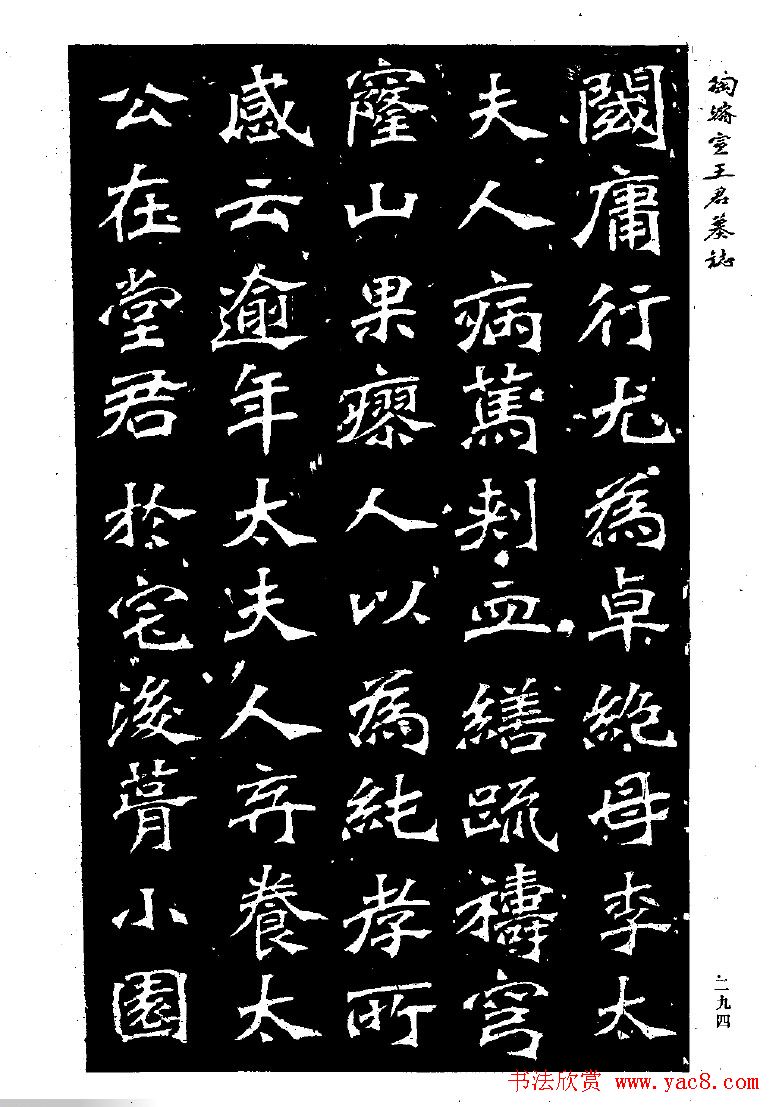 陶濬宣王君墓誌
閾庸行尤為卓絶母李太
夫人病篤刲血繕疏禱穹
窿山果瘳人以為純孝所
感云逾年太夫人弃養太
公在堂君於宅後葺小園
二九四
书法欣赏 www.yac8.com